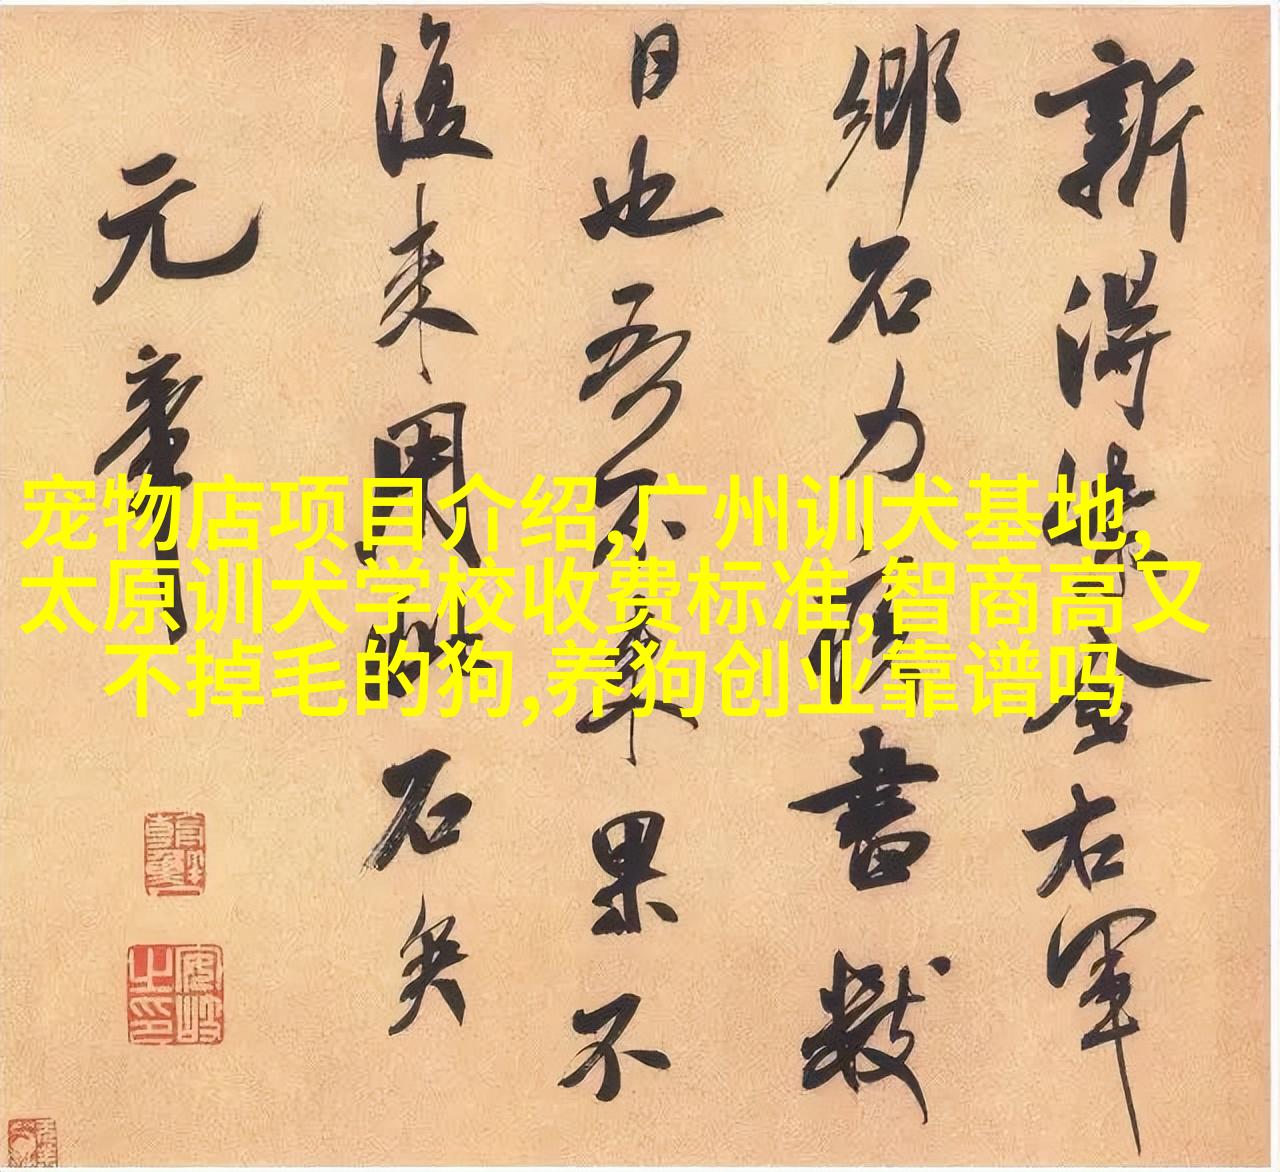 新得紫金右軍
鄉石力疾書數
日也吾不来果不
復来用此石矣
元章
宠物店项目介绍,广州训犬基地,
太原训犬学校收费标准,智商高又
不掉毛的狗,养狗创业靠谱吗